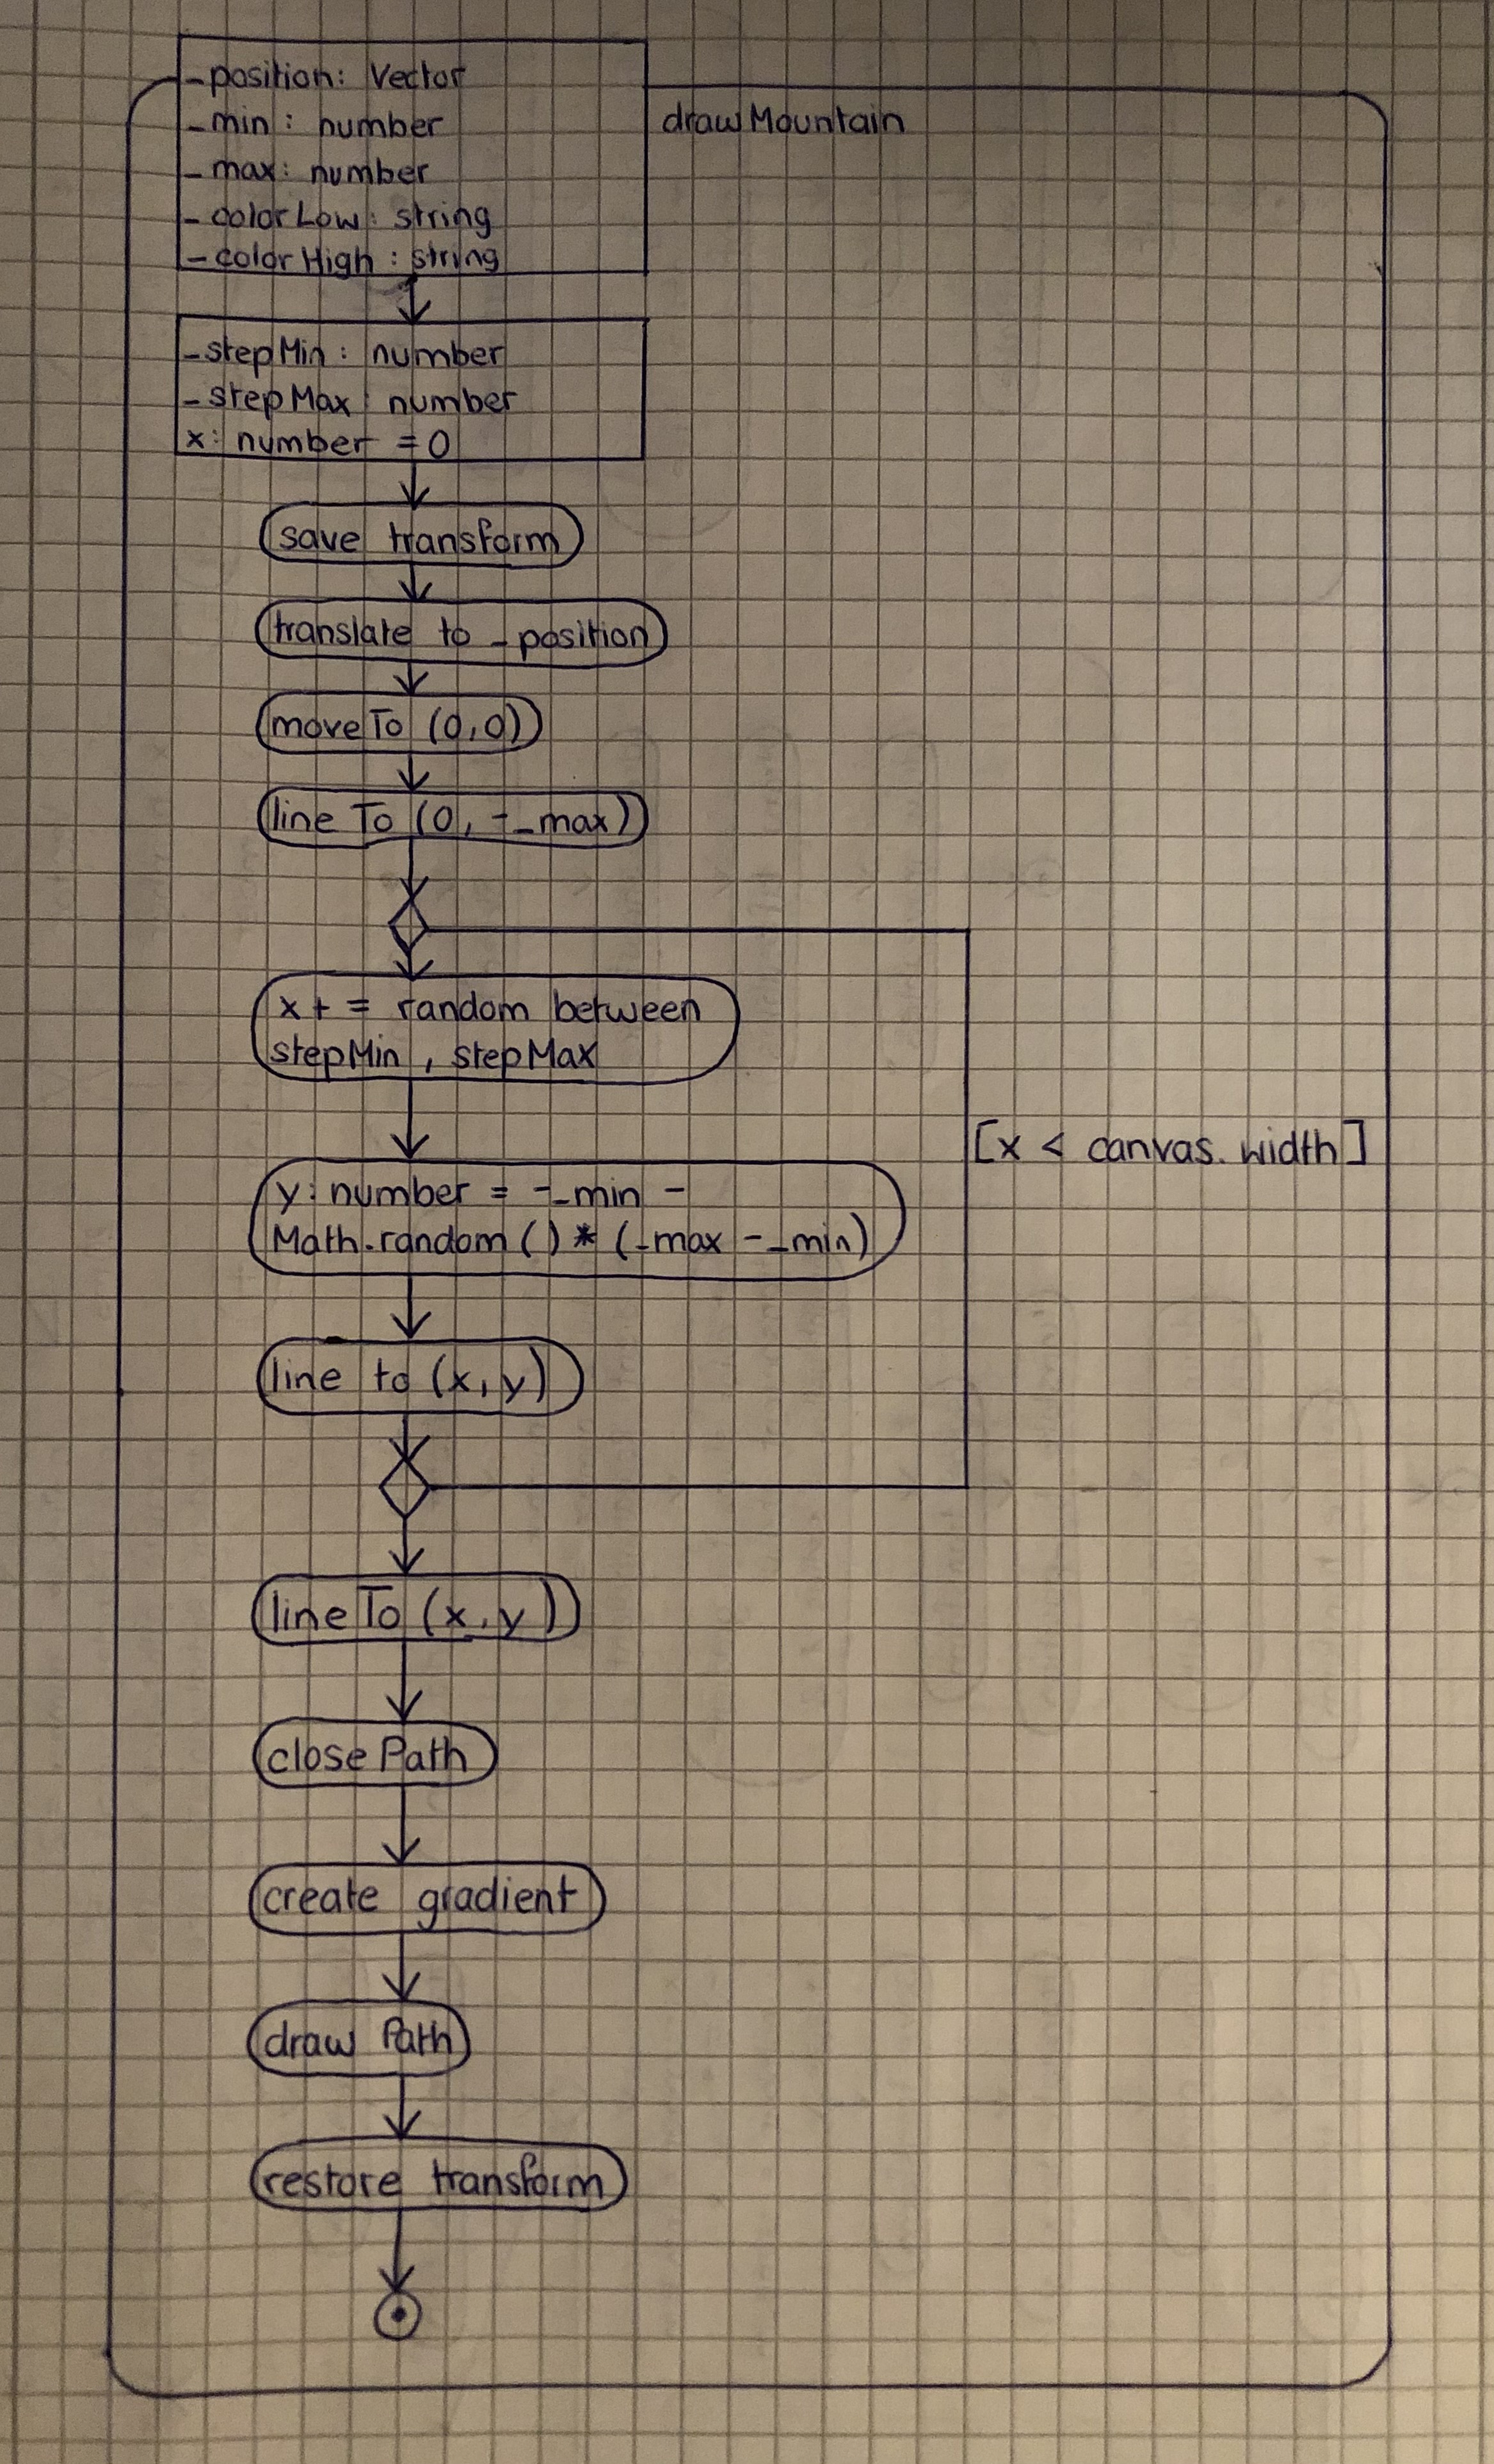 _position: Vector
_min: number
_max: number
_colorLow: string
_colorHigh: string
drawMountain
_stepMin: number
_stepMax: number
x: number = 0
save transform
translate to _position
moveTo (0,0)
lineTo (0, -_max)
x += random between
stepMin, stepMax
[x < canvas.width]
y: number = -_min -
Math.random() * (_max - _min)
line to (x, y)
lineTo (x, y)
closePath
create gradient
draw Path
restore transform